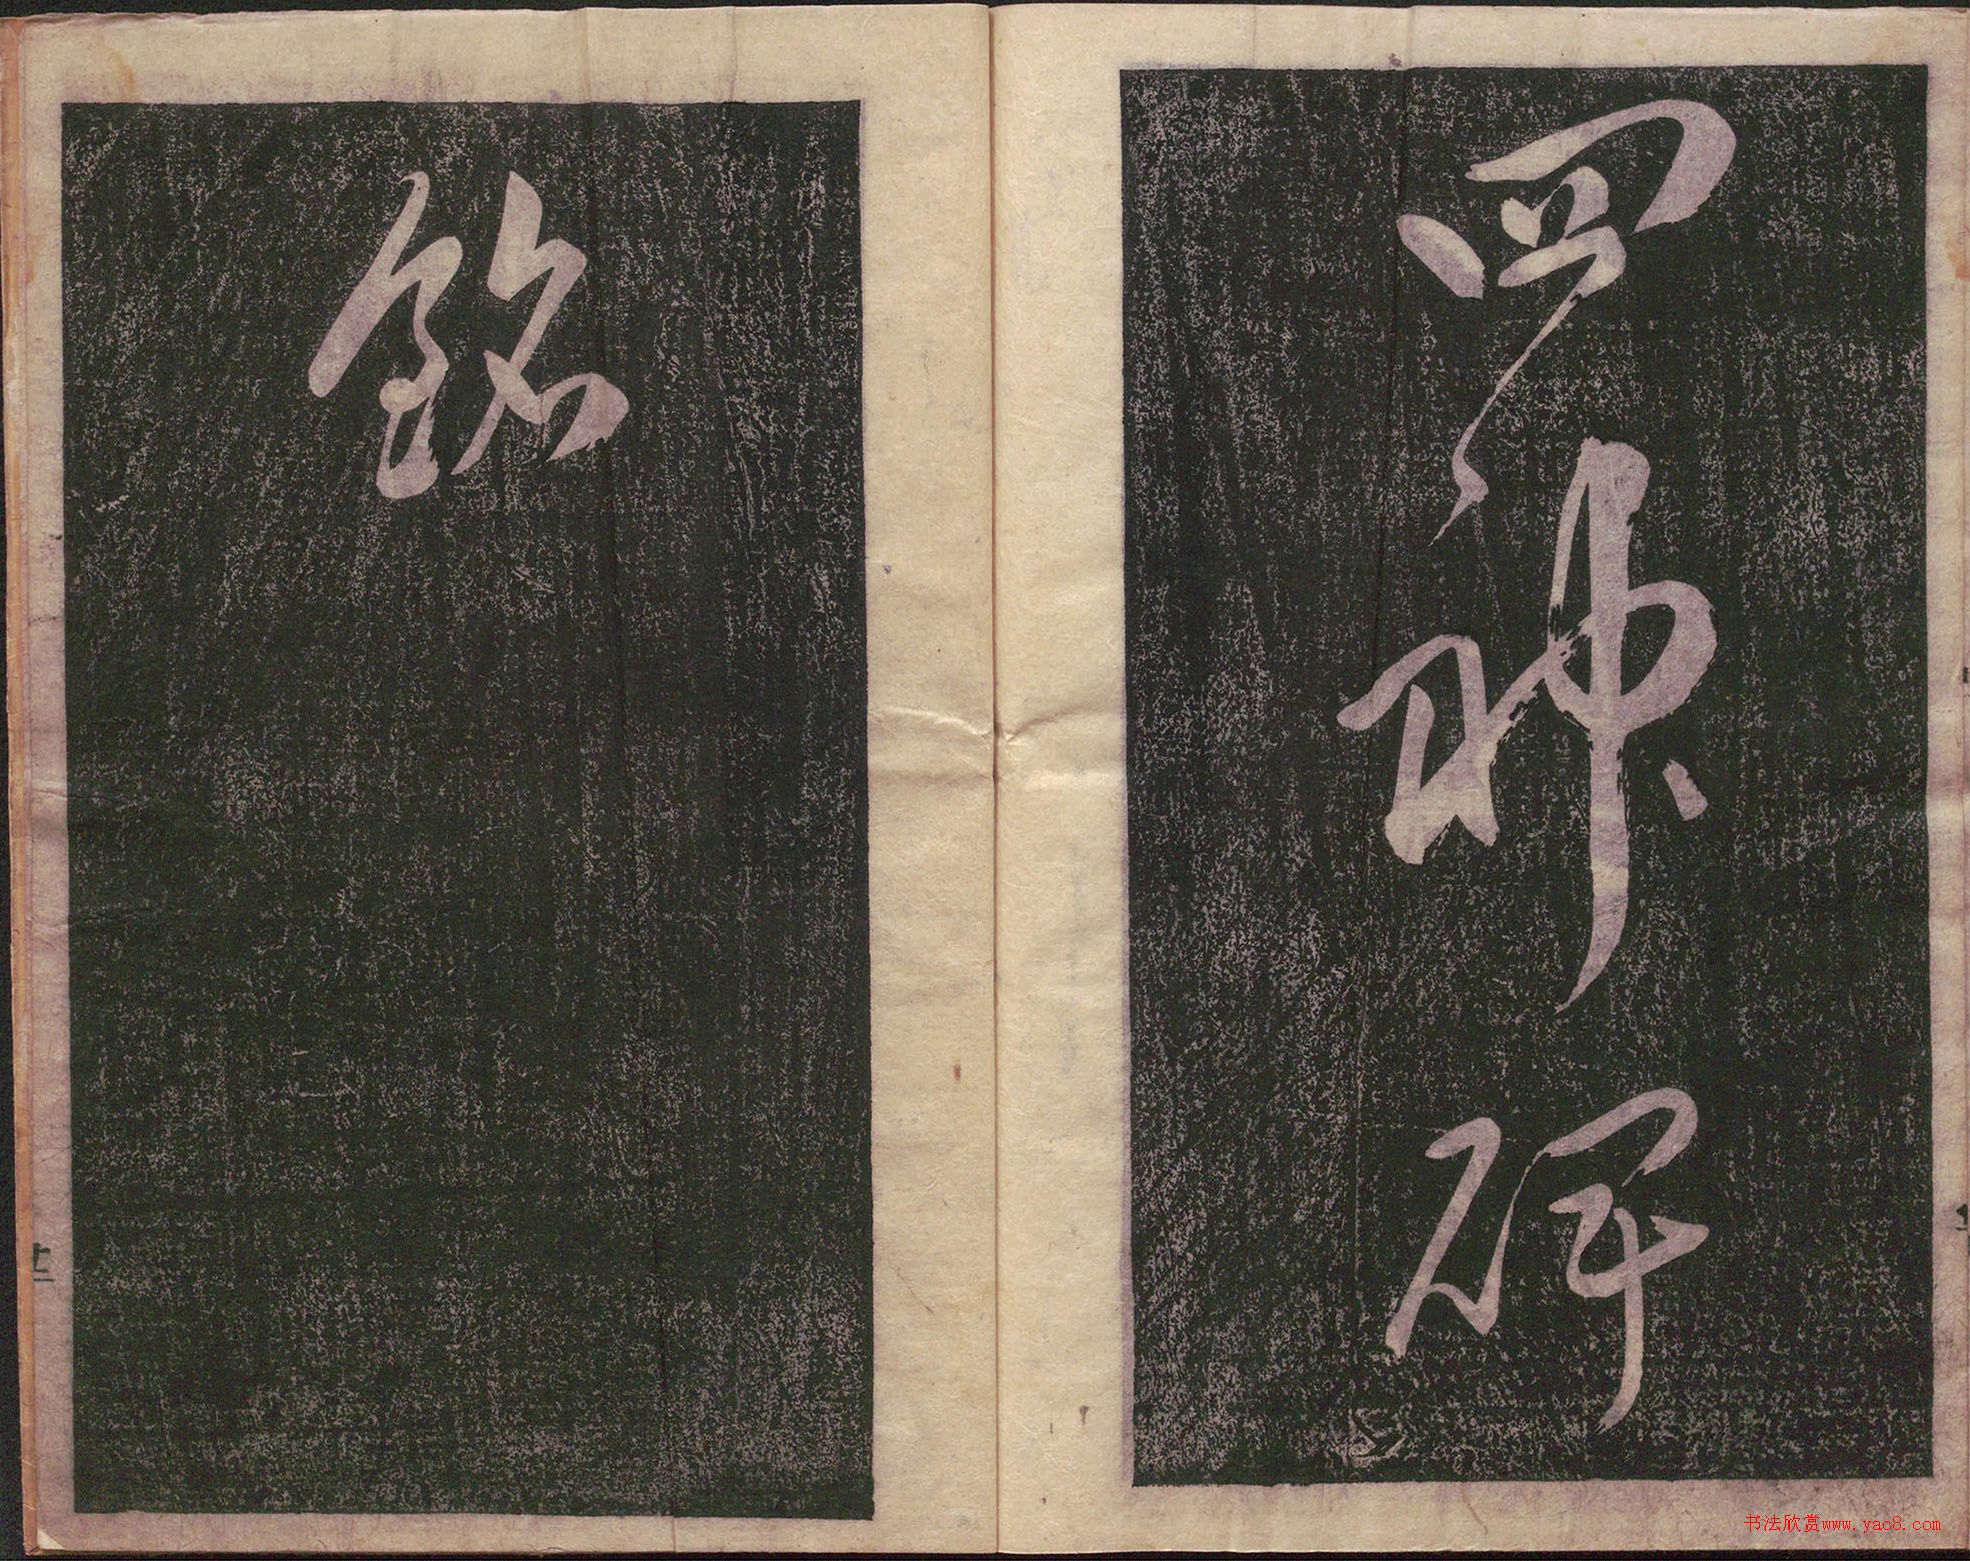 四神碑
銘
书法欣赏www.yac8.com